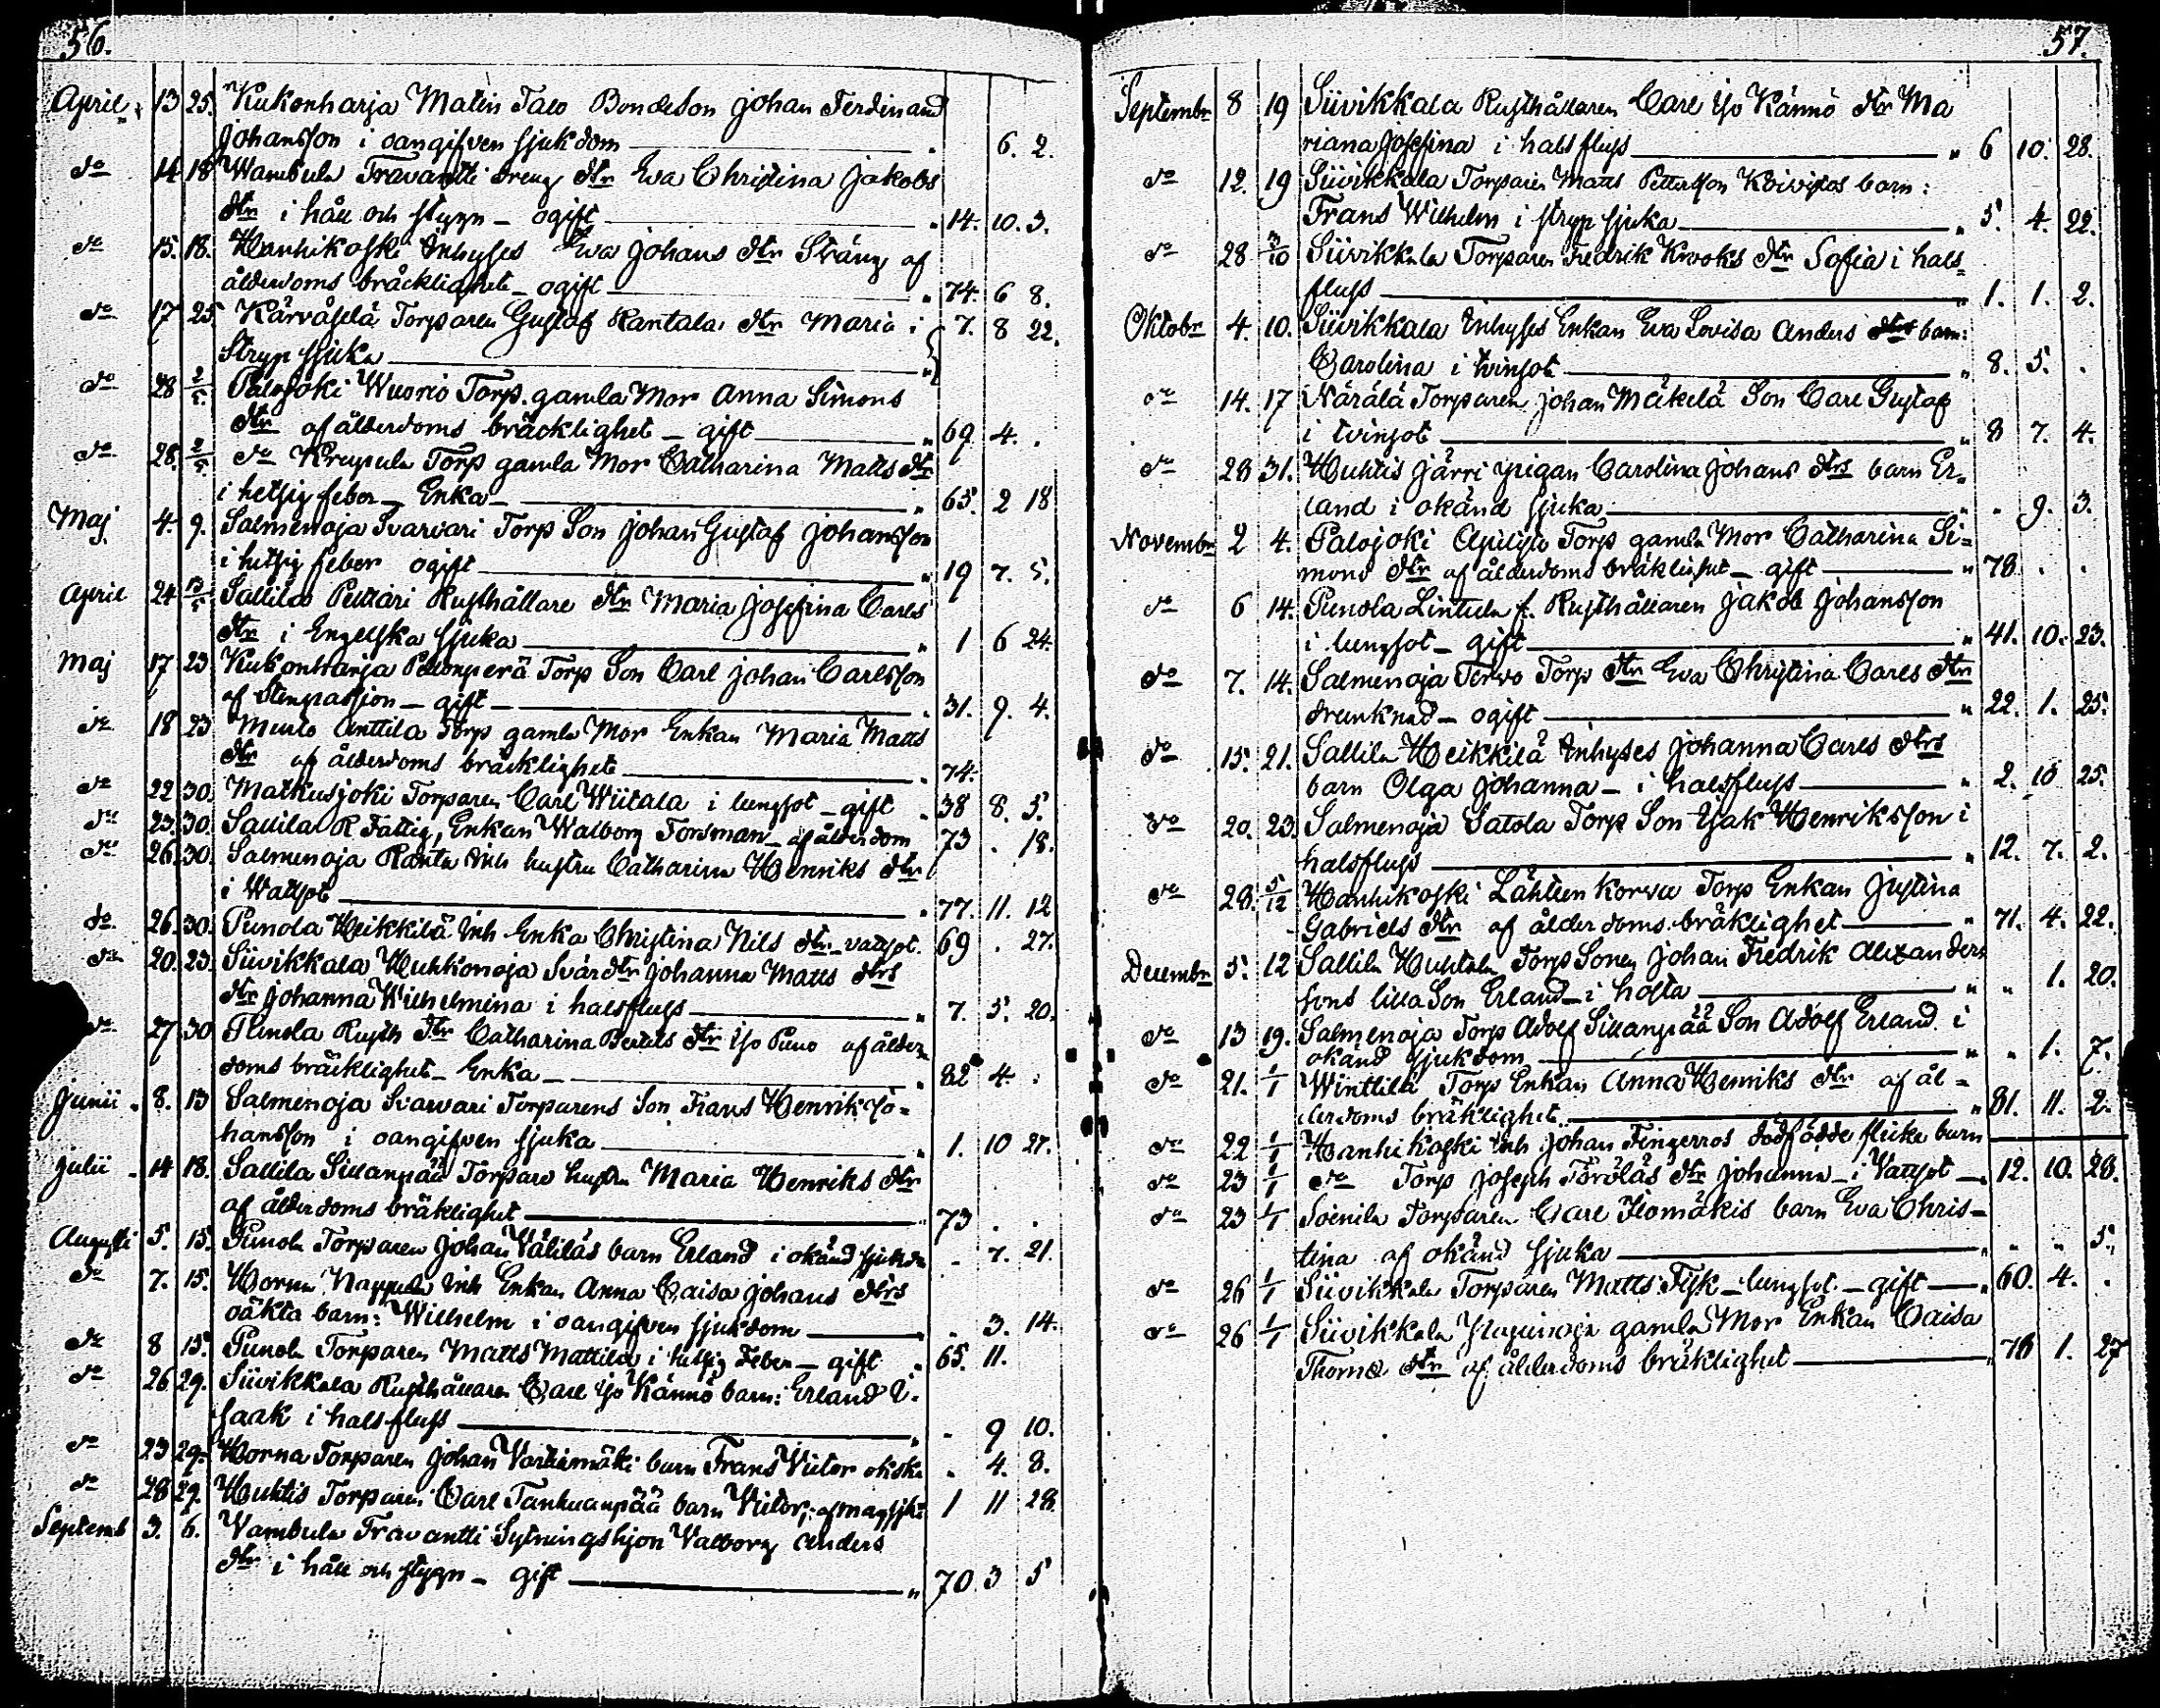 56.
April 13 25. Kukonharja Matin Talo Bondeson Johan Ferdinand
Johansson i oangifven sjukdom " 6. 2.
do 14 18 Wambula Fravantti dreng dtr Eva Christina Jakobs
dtr i håll och stygn - ogift " 14. 10. 3.
do 15. 18. Hanhikoski Inhyses Eva Johans dtr Sträng af
ålderdoms bräcklighet - ogift " 74. 6 8.
do 17 25 Kärväselä Torparen Gustaf Rantala dtr Maria i 7. 8 22.
Stryp sjuka "
do 28 2/5. Palojoki Wuorio Torp. gamla Mor Anna Simons
dtr af ålderdoms bräcklighet - gift " 69 4. .
do 28. 2/5 do Krupula Torp gamla Mor Catharina Matts dtr
i hetsig feber - Enka - " 65. 2 18
Maj 4. 9. Salmenoja Svarvari Torp Son Johan Gustaf Johansson
i hetsig feber ogift " 19 7. 5.
April 24 13/5 Sallila Pettäri Rusthållare dtr Maria Josefina Carls
dtr i Engelska sjuka " 1 6 24.
Maj 17 23 Kukonharja Pellonperä Torp Son Carl Johan Carlsson
af Stenpassion - gift - " 31. 9. 4.
do 18 23 Murto Anttila Torp gamla Mor Enkan Maria Matts
dtr af ålderdoms bräcklighet " 74.
do 22 30. Matkusjoki Torparen Carl Wiitala i lungsot - gift " 38 8. 5.
do 23. 30. Sallila R Fattig, Enkan Walborg Forsman - af ålderdom 73 . 18.
do 26. 30. Salmenoja Ranta Inh hustru Catharina Henriks dtr
i Watsot " 77. 11. 12
do 26. 30. Punola Heikkilä Inh Enka Christina Nils dtr - vatsot. 69 . 27.
do 20. 23. Siivikkala Huhkonoja Svär dtr Johanna Matts dtrs
dtr Johanna Wilhelmina i halsfluss " 7. 5. 20.
do 27 30 Punola Rusth dtr Catharina Bertils dtr Yso Puno af ålder=
doms bräcklighet - Enka - " 82 4. .
Junii 8. 13 Salmenoja Svarvari Torparens Son Frans Henrik Jo=
hansson i oangifven sjuka " 1. 10 27.
Julii 14 18. Sallila Sillanpää Torpare hustru Maria Henriks dtr
af ålderdoms bräklighet " 73 . .
Augusti 5. 15. Punola Torparen Johan Välilas barn Erland i okänd sjukdm - 7. 21.
do 7. 15. Horna Nappula Inh Enkan Anna Caisa Johans dtrs
oäkta barn: Wilhelm i oangifven sjukdom - 3. 14.
do 8 15. Punola Torparen Matts Mattila i hetsig Feber - gift " 65. 11.
do 26 29. Siivikkala Rusthållaren Carl Yso Kännö barn: Erland I=
saak i halsfluss " - 9 10.
do 23 29. Horna Torparen Johan Vartiamäki barn Frans Victor - 4. 8.
do 28 29. Huhtis Torparen Carl Tanhuanpää barn Victor, af magsjka 1 11 28.
Septemb 3. 6. Vambula Fravantti Sytningshjon Valborg Anders
dtr i håll och stygn - gift " 70. 3 5
57.
Septembr 8 19 Siivikkala Rusthållaren Carl Yso Kännö dtr Ma
riana Josefina i halsfluss " 6 10. 28.
do 12. 19 Siivikkala Torparen Matts Pettersson Koivistos barn:
Frans Wilhelm i stryp sjuka " 5. 4. 22.
do 28 3/10 Siivikkala Torparen Fredrik Krooks dtr Sofia i hals=
fluss " 1. 1. 2.
Oktobr 4. 10. Siivikkala Inhyses Enkan Eva Lovisa Anders dtrs barn:
Carolina i tvinsot " 8. 5. .
do 14. 17 Närälä Torparen Johan Mäkelä Son Carl Gustaf
i tvinsot " 8 7. 4.
do 28 31. Huhtis Järri pigan Carolina Johans dtrs barn Er=
land i okänd sjuka " " 9. 3.
Novembr 2 4. Palojoki Torp gamla Mor Catharina Si=
mons dtr af ålderdoms bräklighet - gift " 78 . .
do 6 14. Punola Lintula f. Rusthållaren Jakob Johansson
i lungsot - gift " 41. 10. 23.
do 7. 14. Salmenoja Tervo Torp dtr Eva Christina Carls dtr
drunknad - ogift " 22. 1. 25.
do 15. 21. Sallila Heikkilä Inhyses Johanna Carls dtrs
barn Olga Johanna - i halsfluss " 2. 10 25.
do 20. 23. Salmenoja Satola Torp Son Isak Henriksson i
halsfluss " 12. 7. 2.
do 28. 5/12 Hanhikoski Lähteenkorva Torp Enkan Justina
Gabriels dtr af ålderdoms bräklighet " 71. 4. 22.
Decembr 5. 12 Sallila Huhtala Torp Sonen Johan Fredrik Alexanders
sons lilla Son Erland - i hosta " " 1. 20.
do 13 19. Salmenoja Torp Adolf Sillanpää Son Adolf Erland i
okänd sjukdom " " 1. 7.
do 21. 1/1 Winttilä Torp Enkan Anna Henriks dtr af ål=
derdoms bräklighet " 81. 11. 2.
do 22 1/1 Hanhikoski Inh Johan Fingerros dödfödde flicke barn
do 23 1/1 do Torp Joseph Törölas dtr Johanna - i Vatsot " 12. 10. 28.
do 23 1/1 Soinila Torparen Carl Isomäkis barn Eva Chris=
tina af okänd sjuka " " " 5.
do 26 1/1 Siivikkala Torparen Matts Fisk - lungsot - gift " 60. 4. .
do 26 1/1 Siivikkala gamla Mor Enkan Caisa
Thomæ dtr af ålderdoms bräklighet " 78 1. 27